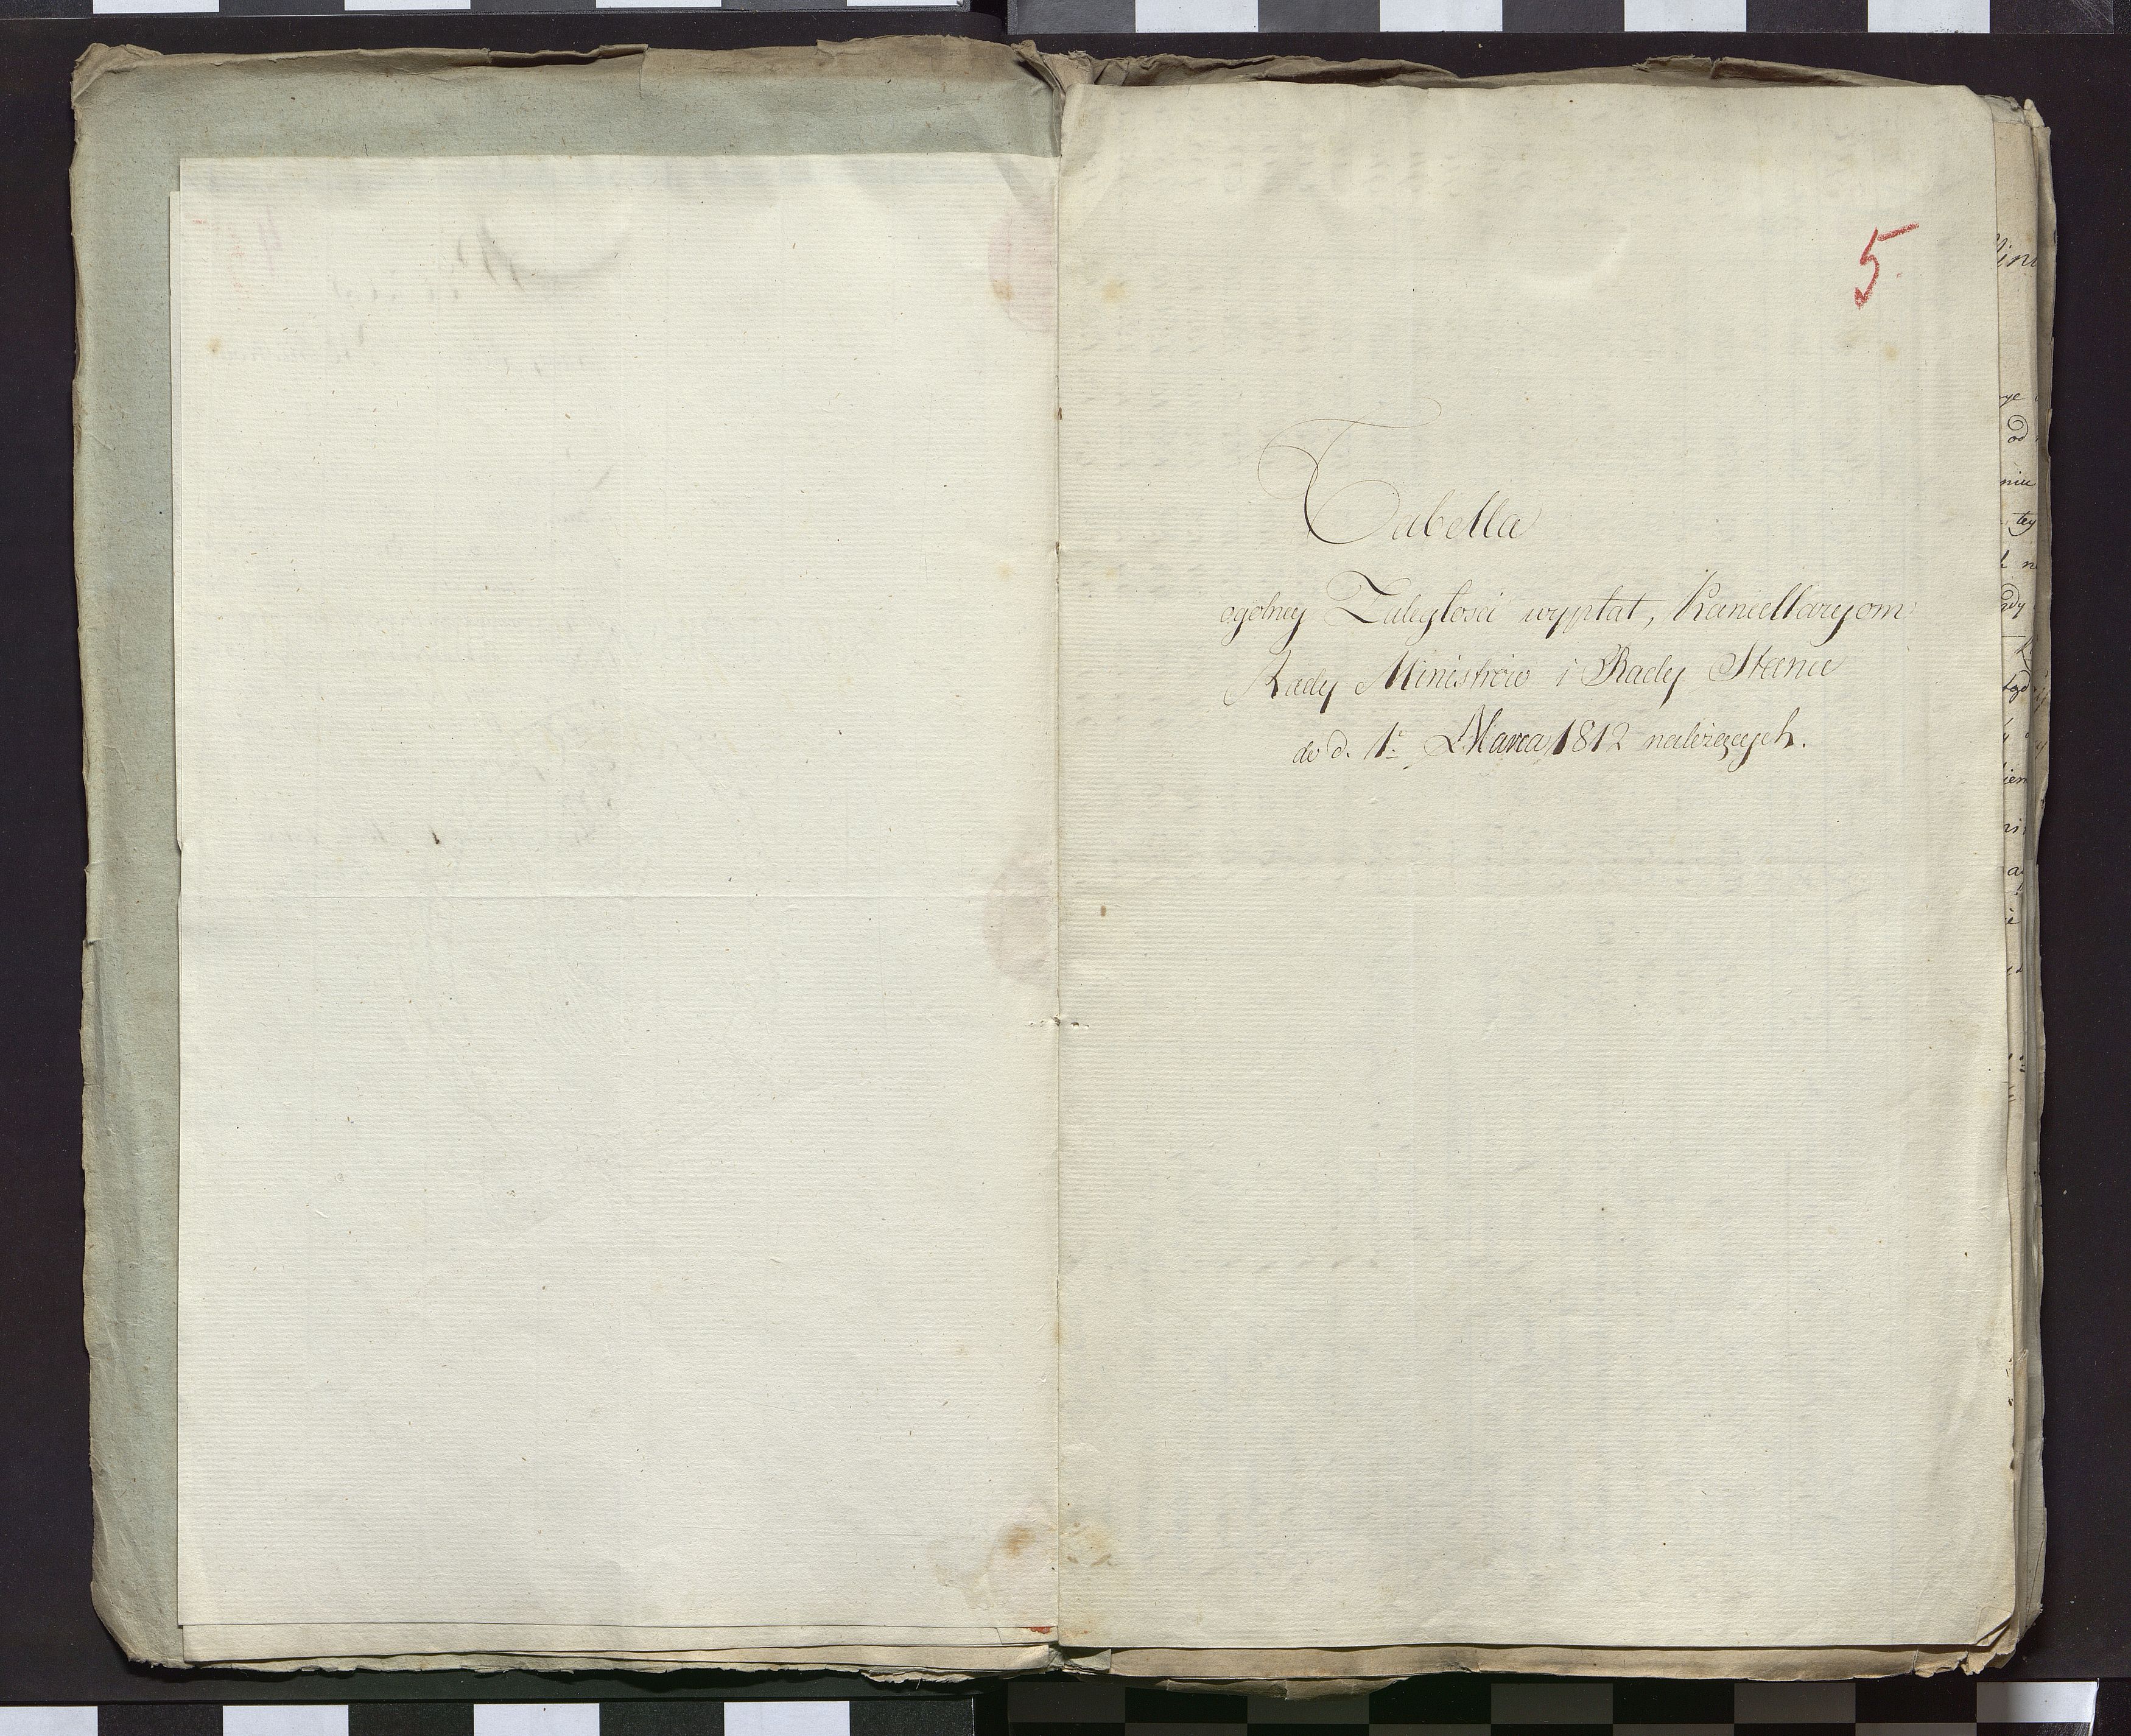 5.
Tabella
ogolney Zaległości wypłat, Kancellaryom
Rady Ministrów i Rady Stanu
do d. 1º Marca 1812 należących.